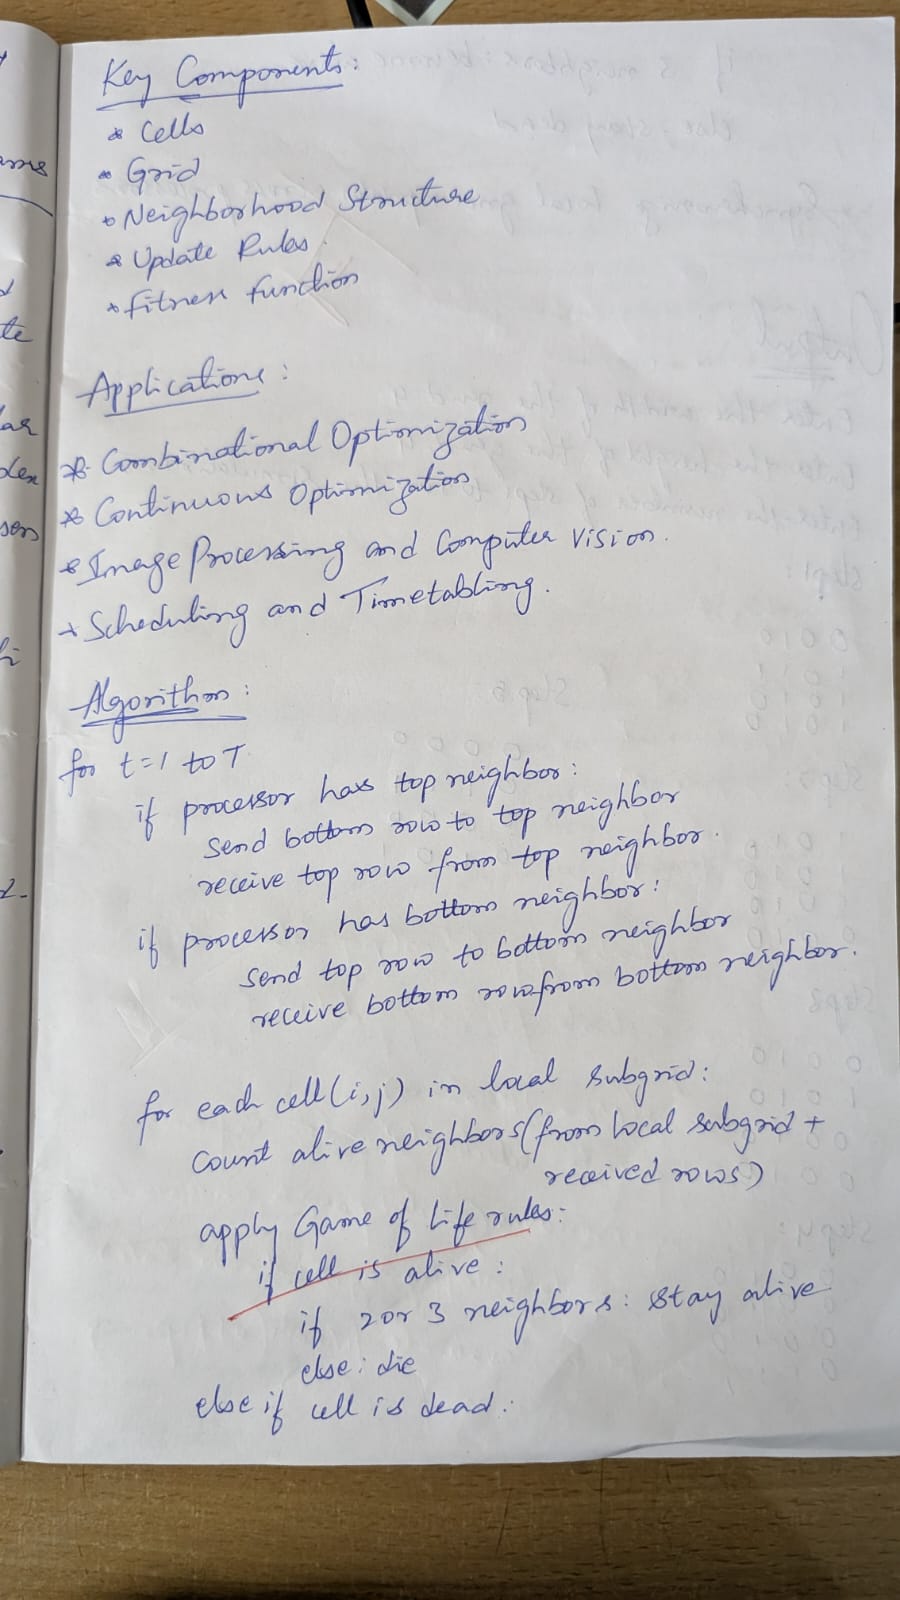 Key Components:
* Cells
* Grid
* Neighborhood Structure
* Update Rules
* Fitness Function
Applications:
* Combinational Optimization
* Continuous Optimization
* Image Processing and Computer Vision.
* Scheduling and Timetabling.
Algorithm:
for t=1 to T
if processor has top neighbor:
Send bottom row to top neighbor
receive top row from top neighbor.
if processor has bottom neighbor:
Send top row to bottom neighbor
receive bottom row from bottom neighbor.
for each cell(i,j) in local subgrid:
Count alive neighbors(from local subgrid +
received rows)
apply Game of Life rules:
if cell is alive:
if 2 or 3 neighbors: stay alive
else: die
else if cell is dead: